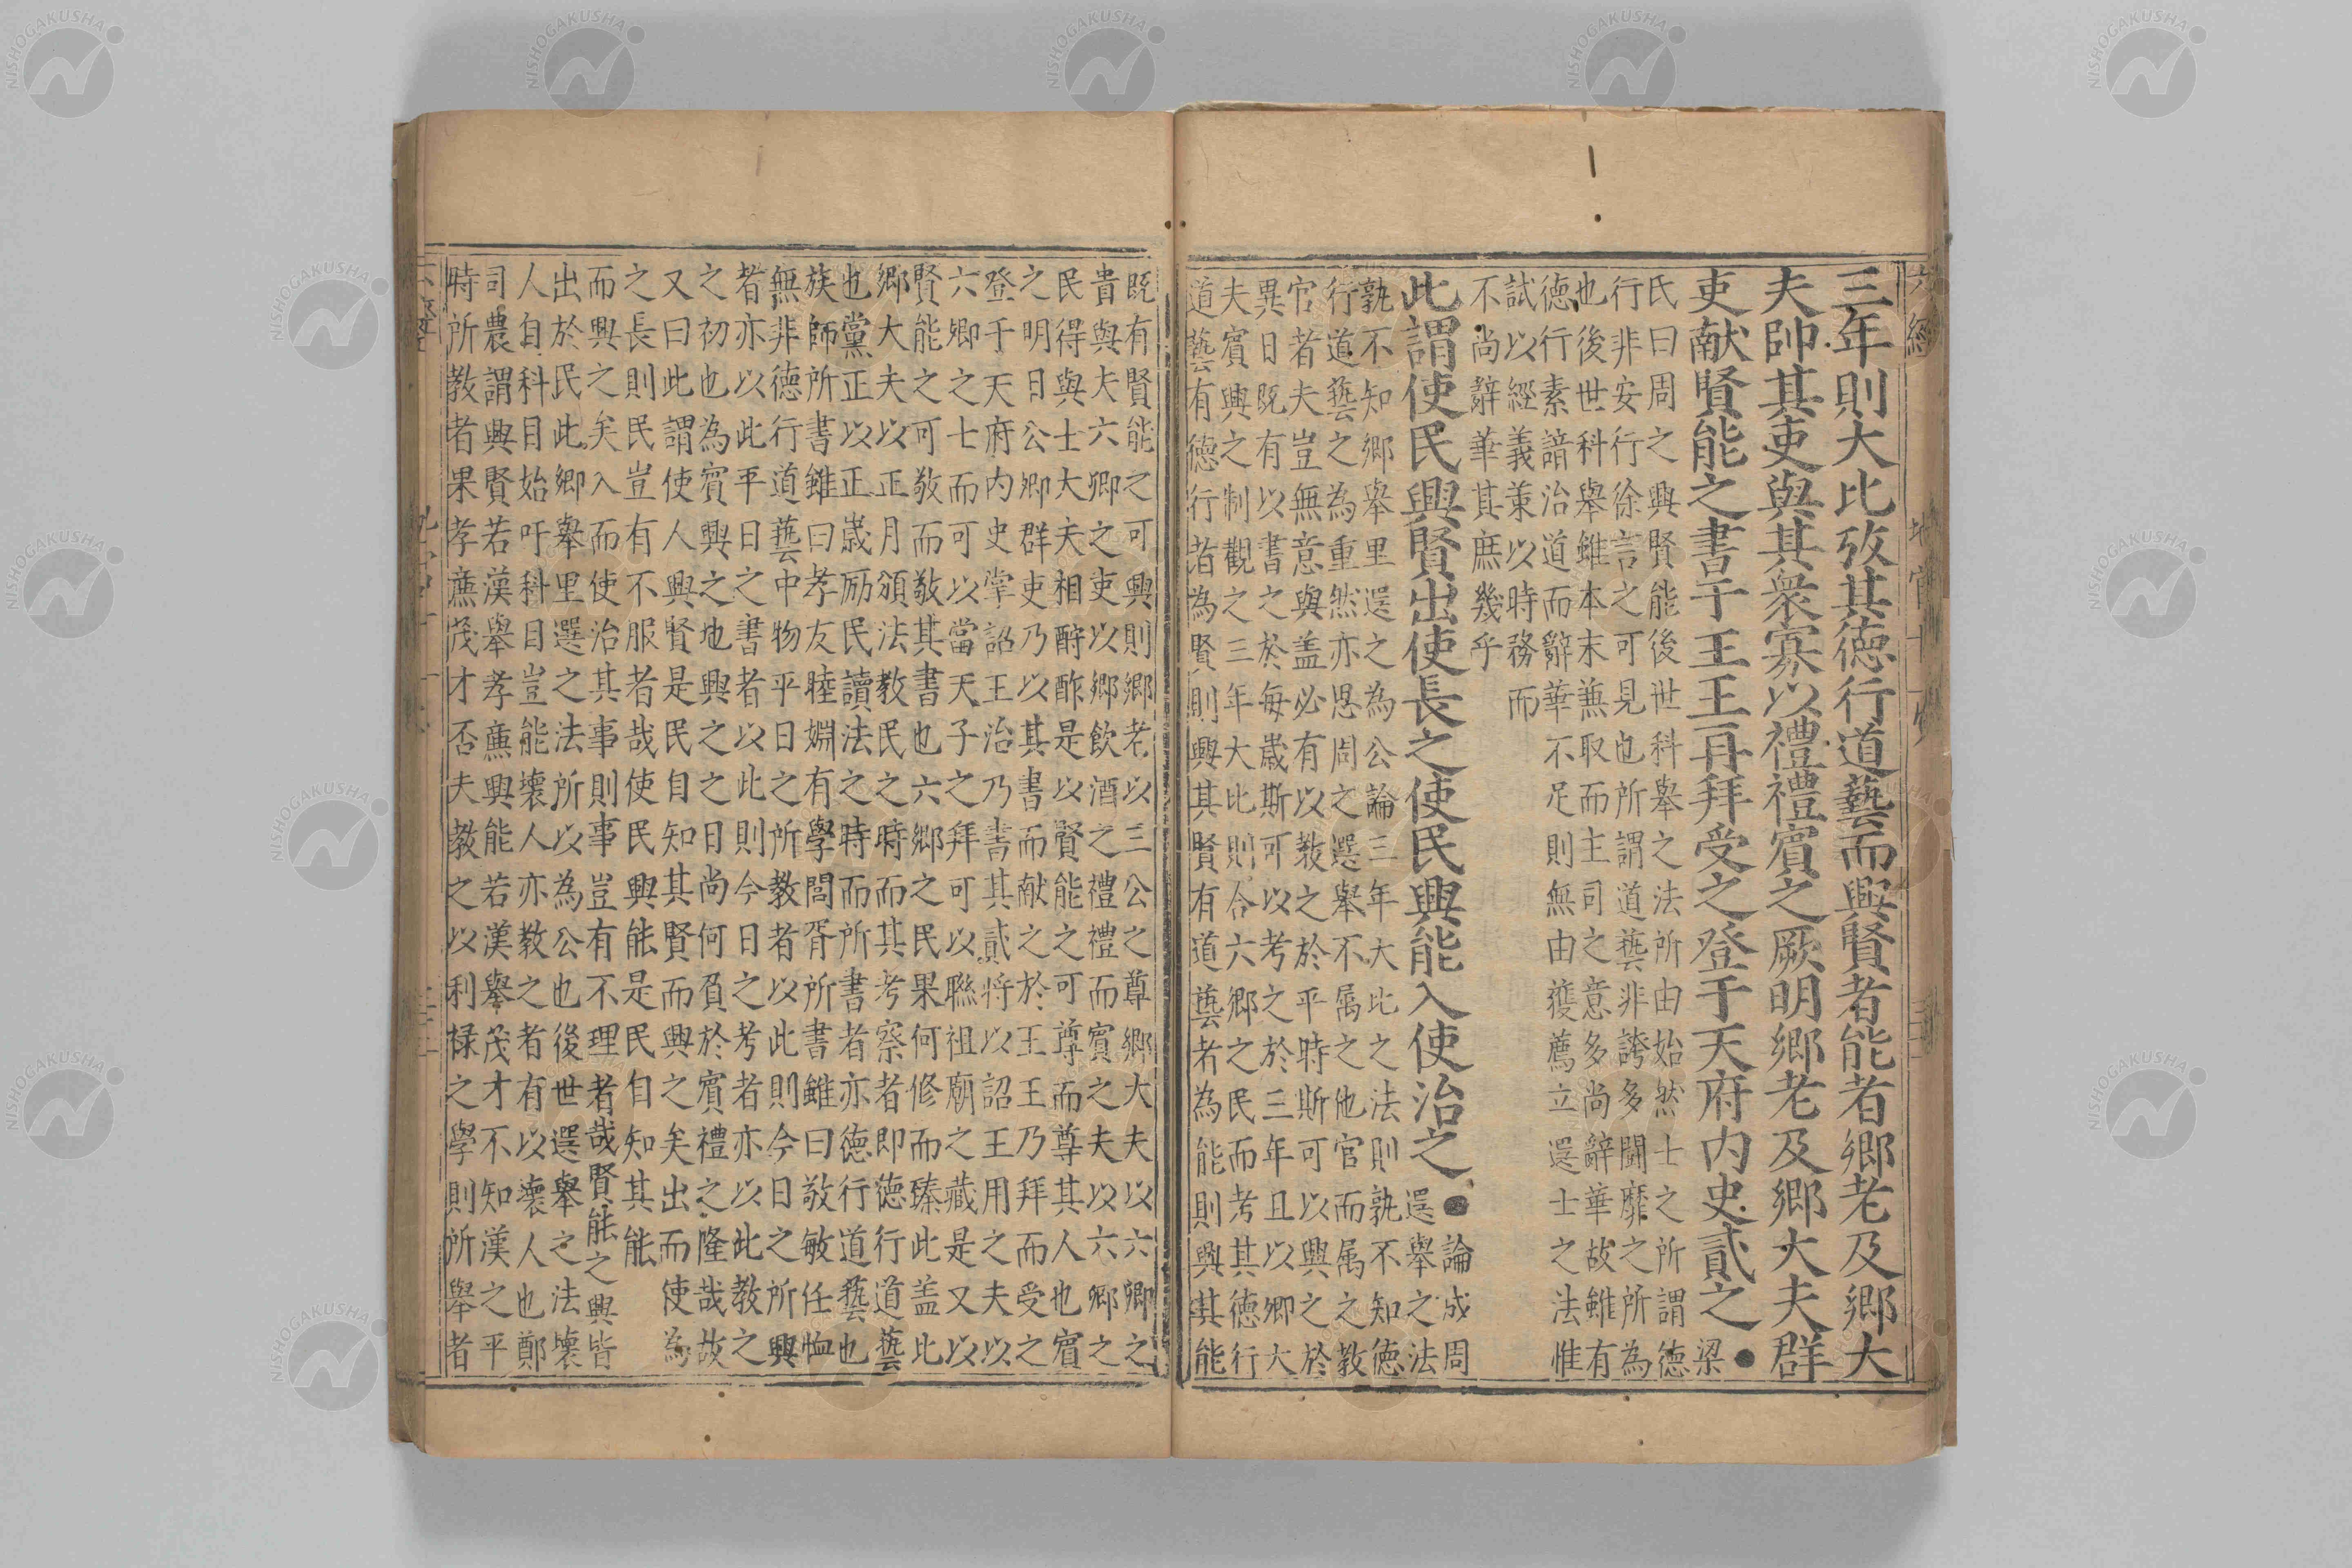 三年則大比攷其德行道藝而興賢者能者鄉老及鄉大
夫帥其吏與其衆寡以禮禮賓之厥明鄉老及鄉大夫群
吏献賢能之書于王王再拜受之登于天府内史貳之●梁
氏曰周之興賢能後世科舉之法所由始然士之所謂德
行非安行徐言之可見也所謂道藝非誇多闘靡之所為
也後世科舉雖本末兼取而主司之意多尚辭華故雖有
德行素諳治道而辭華不足則無由獲薦立選士之法惟
試以經義兼以時務而
不尚辭華其庶幾乎
此謂使民興賢出使長之使民興能入使治之●論成周
選舉之法
孰不知鄉舉里選之為公論三年大比之法則孰不知德
行道藝之為重然亦思周之選舉不属之他官而属之教
官者夫豈無意與盖必有以教之於平時斯可以興之於
異日既有以書之於每歲斯可以考之於三年且以卿大
夫賓興之制觀之三年大比則合六鄉之民而考其德行
道藝有德行者為賢則興其賢有道藝者為能則興其能
既有賢能之可興則鄉老以三公之尊鄉大夫以六卿之
貴與夫六卿之吏以鄉飲酒之禮禮而賓之夫以六鄉之
民得與士大夫相酧酢是以賢能之可尊而尊其人也賓
之明日公卿群吏乃以其書而献之於王王乃拜而受之
登于天府内史掌詔王治乃書其貳将以詔王用之夫以
六鄉之士而可以當天子之拜可以聮祖廟之藏是又以
賢能之可敬而敬其書也六鄉之民果何修而臻此盖此
鄉大夫以正月頒法教民之時而其考察者即德行道藝
也黨正以正歲励民讀法之時而所書者亦德行道藝也
族師所書雖曰孝友睦婣有學閭胥所書雖曰敬敏任恤
無非德行道藝中物平日之所教者以此則今日之所興
者亦以此平日之書者以此則今日之考者亦以此教之
之初也為賓興之地興之之日尚何負於賓禮之隆哉故
又曰此謂使人興賢是民自知其賢而興之矣出而使為
之長則民豈有不服者哉使民興能是民自知其能
而興之矣入而使治其事則事豈有不理者哉賢能之興皆
出於民此鄉舉里選之法所以為公也後世選舉之法壞
人自科目始吁科目豈能壞人亦教之者有以壞人也鄭
司農謂興賢若漢舉孝廉興能若漢舉茂才不知漢之平
時所教者果孝廉茂才否夫教之以利祿之學則所舉者